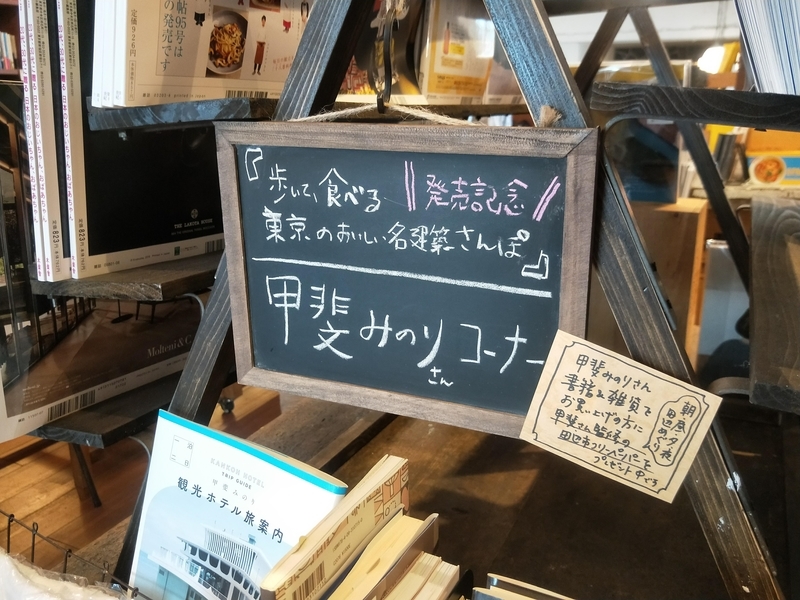 帖95号は
の発売です
定価926円
THE LAKOTA HOUSE
823
823
Molteni&C
『歩いて、食べる
発売記念
東京のおいしい名建築さんぽ』
甲斐みのりコーナー
さん
甲斐みのりさん
書籍&雑貨を
お買い上げの方に
甲斐さん監修の
田辺市フリーペーパーを
プレゼント中です
朝昼夕夜
田辺めぐり
TRIP GUIDE
甲斐みのり
観光ホテル旅案内